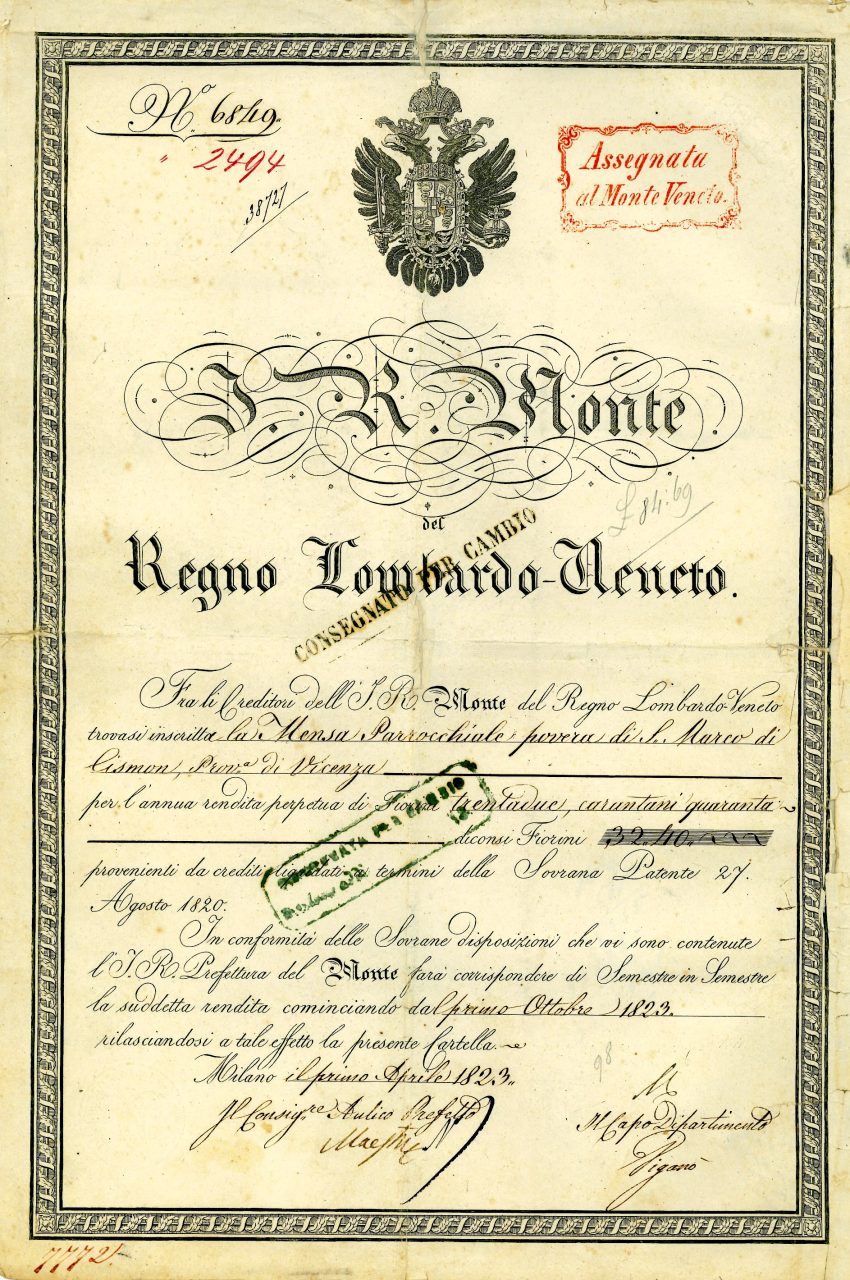 N.º 6849.
" 2494
38727
Assegnata
al Monte Veneto.
I. R. Monte
£ 84:69
del
Regno Lombardo-Veneto.
CONSEGNATO PER CAMBIO
Fra li Creditori dell'I. R. Monte del Regno Lombardo-Veneto
trovasi inscritta la Mensa Parrocchiale povera di S. Marco di
Cismon, Prov.ª di Vicenza
per l'annua rendita perpetua di Fiorini trentadue, carantani quaranta
diconsi Fiorini 32.40.
PER CAMBIO
provenienti da crediti liquidati a termini della Sovrana Patente 27.
Agosto 1820.
In conformità delle Sovrane disposizioni che vi sono contenute
l'I. R. Prefettura del Monte farà corrispondere di Semestre in Semestre
la suddetta rendita cominciando dal primo Ottobre 1823.
rilasciandosi a tale effetto la presente Cartella.
98
Milano il primo Aprile 1823.
Il Consig.re Aulico Prefetto
Il Capo Dipartimento
Maestri
Viganò
7772.